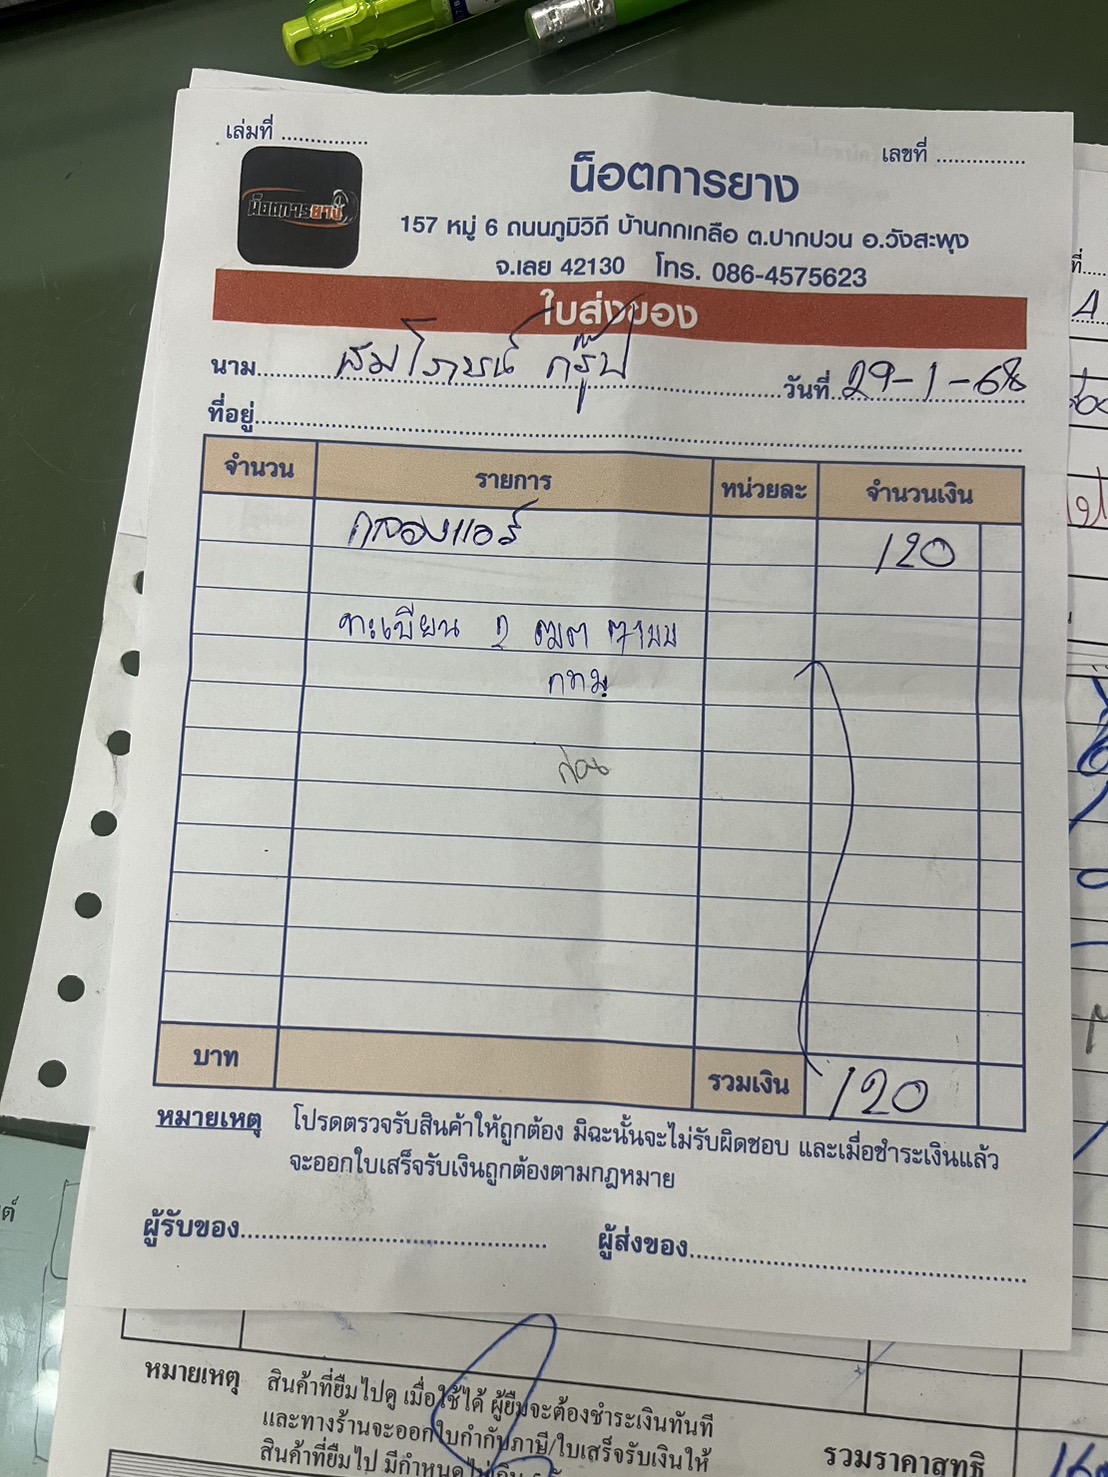 เล่มที่ ...............
เลขที่ ...............
น็อตการยาง
น็อตการยาง
157 หมู่ 6 ถนนภูมิวิถี บ้านกกเกลือ ต.ปากปวน อ.วังสะพุง
จ.เลย 42130 โทร. 086-4575623
ใบส่งของ
นาม สมโภชน์ กรุ๊ป วันที่ 29-1-68
ที่อยู่
จำนวน รายการ หน่วยละ จำนวนเงิน
กรองแอร์ 120
ทะเบียน 2 ฒต
กทม
บาท รวมเงิน 120
หมายเหตุ โปรดตรวจรับสินค้าให้ถูกต้อง มิฉะนั้นจะไม่รับผิดชอบ และเมื่อชำระเงินแล้ว
จะออกใบเสร็จรับเงินถูกต้องตามกฎหมาย
ผู้รับของ ผู้ส่งของ
หมายเหตุ สินค้าที่ยืมไปดู เมื่อใช้ได้ ผู้ยืมจะต้องชำระเงินทันที
และทางร้านจะออกใบกำกับภาษี/ใบเสร็จรับเงินให้
สินค้าที่ยืมไป มีกำหนด
รวมราคาสุทธิ